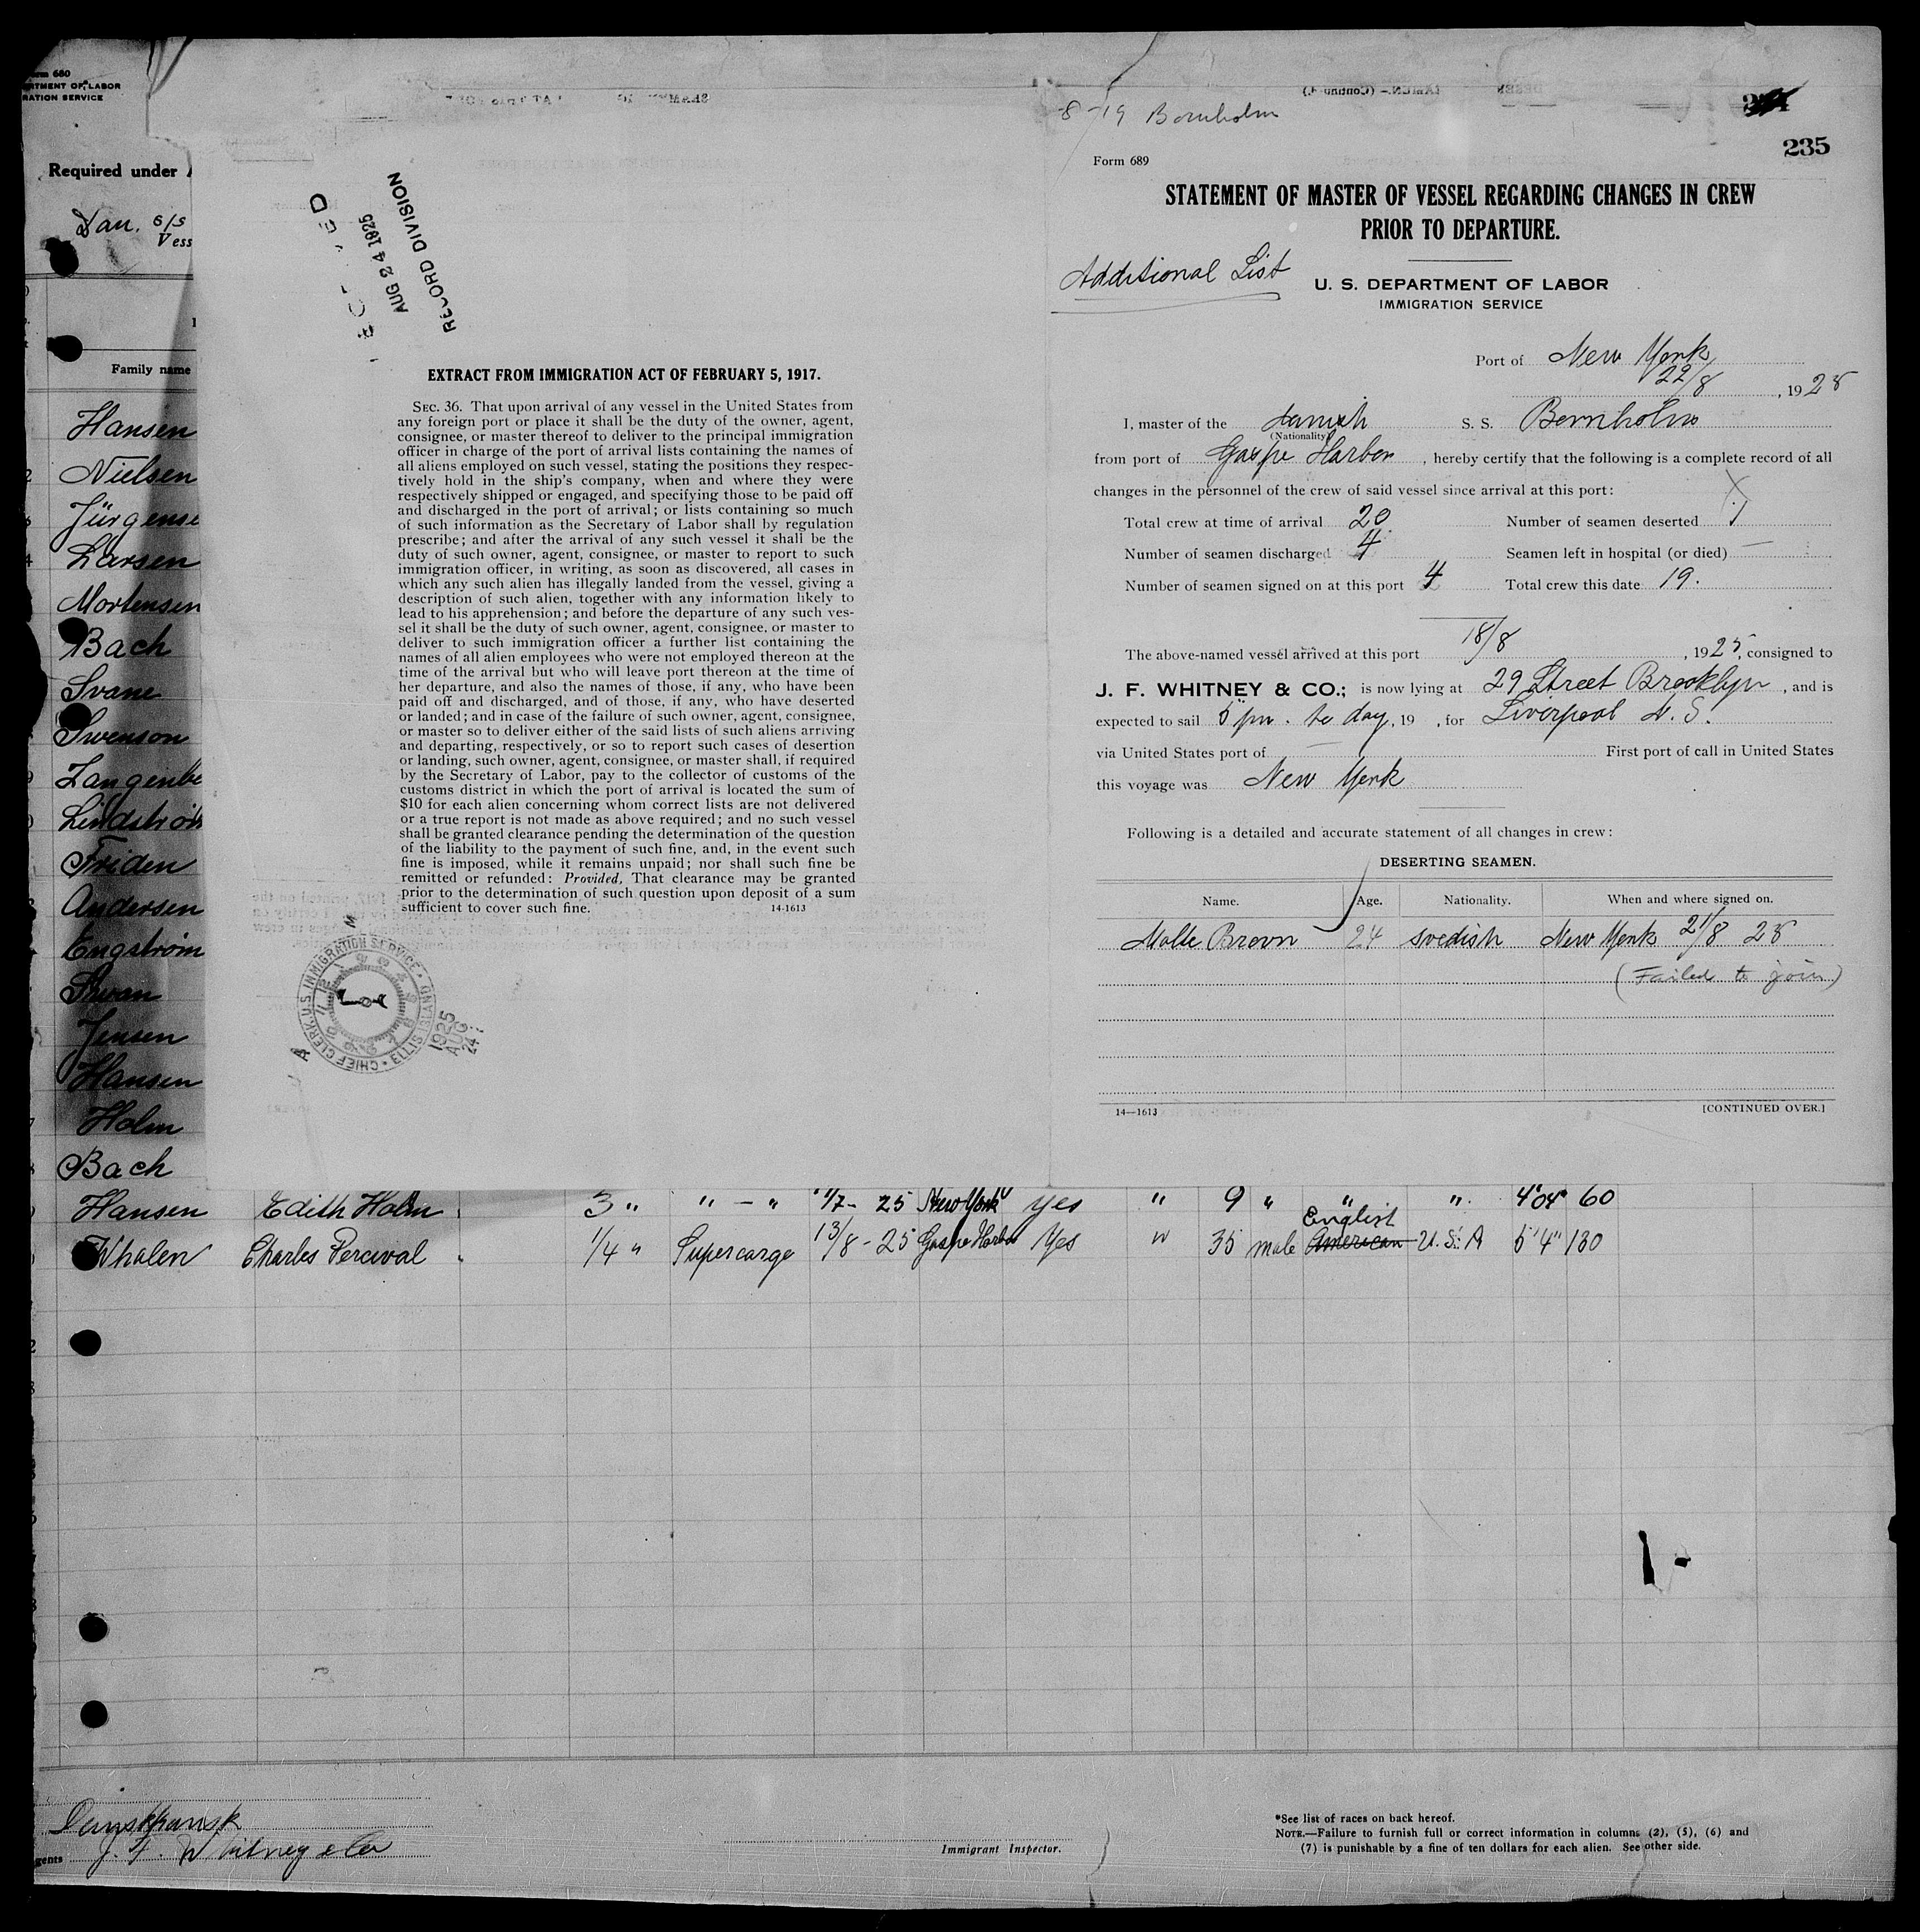 Form 680
DEPARTMENT OF LABOR
IMMIGRATION SERVICE
Required under
Dan. S/S
Vess
Family name
Hansen
Nielsen
Jürgense
Larsen
Mortensen
Bach
Svane
Swenson
Langenbe
Lindström
Friden
Andersen
Engström
Swan
Jensen
Hansen
Holm
Bach
Hansen Edith Holm 3 " " — " 1/7 - 25 New York yes " 9 " " " 4'04" 60
English
Whalen Charles Percival 1/4 " Supercargo 13/8 - 25 Gaspe Harbor Yes W 35 male American U.S.A 5'4" 130
J. F. Whitney & Co
gents
Immigrant Inspector.
*See list of races on back hereof.
NOTE.—Failure to furnish full or correct information in columns (2), (5), (6) and
(7) is punishable by a fine of ten dollars for each alien. See other side.
AUG 24 1925
RECORD DIVISION
EXTRACT FROM IMMIGRATION ACT OF FEBRUARY 5, 1917.
SEC. 36. That upon arrival of any vessel in the United States from
any foreign port or place it shall be the duty of the owner, agent,
consignee, or master thereof to deliver to the principal immigration
officer in charge of the port of arrival lists containing the names of
all aliens employed on such vessel, stating the positions they respec-
tively hold in the ship's company, when and where they were
respectively shipped or engaged, and specifying those to be paid off
and discharged in the port of arrival; or lists containing so much
of such information as the Secretary of Labor shall by regulation
prescribe; and after the arrival of any such vessel it shall be the
duty of such owner, agent, consignee, or master to report to such
immigration officer, in writing, as soon as discovered, all cases in
which any such alien has illegally landed from the vessel, giving a
description of such alien, together with any information likely to
lead to his apprehension; and before the departure of any such ves-
sel it shall be the duty of such owner, agent, consignee, or master to
deliver to such immigration officer a further list containing the
names of all alien employees who were not employed thereon at the
time of the arrival but who will leave port thereon at the time of
her departure, and also the names of those, if any, who have been
paid off and discharged, and of those, if any, who have deserted
or landed; and in case of the failure of such owner, agent, consignee,
or master so to deliver either of the said lists of such aliens arriving
and departing, respectively, or so to report such cases of desertion
or landing, such owner, agent, consignee, or master shall, if required
by the Secretary of Labor, pay to the collector of customs of the
customs district in which the port of arrival is located the sum of
$10 for each alien concerning whom correct lists are not delivered
or a true report is not made as above required; and no such vessel
shall be granted clearance pending the determination of the question
of the liability to the payment of such fine, and, in the event such
fine is imposed, while it remains unpaid; nor shall such fine be
remitted or refunded: Provided, That clearance may be granted
prior to the determination of such question upon deposit of a sum
sufficient to cover such fine. 14-1613
CHIEF CLERK. U.S. IMMIGRATION SERVICE • ELLIS ISLAND •
1925
AUG
24
8-19 Bornholm
235
Form 689
STATEMENT OF MASTER OF VESSEL REGARDING CHANGES IN CREW
PRIOR TO DEPARTURE.
Additional List
U. S. DEPARTMENT OF LABOR
IMMIGRATION SERVICE
Port of New York
22/8, 1925
I, master of the Danish S. S. Bornholm
(Nationality)
from port of Gaspe Harbor, hereby certify that the following is a complete record of all
changes in the personnel of the crew of said vessel since arrival at this port:
Total crew at time of arrival 20 Number of seamen deserted 1
Number of seamen discharged 4 Seamen left in hospital (or died) —
Number of seamen signed on at this port 4 Total crew this date 19.
The above-named vessel arrived at this port 18/8, 1925, consigned to
J. F. WHITNEY & CO.; is now lying at 29 Street Brooklyn, and is
expected to sail 5 pm. to day, 19 , for Liverpool N. S.
via United States port of — First port of call in United States
this voyage was New York
Following is a detailed and accurate statement of all changes in crew:
DESERTING SEAMEN.
Name. Age. Nationality. When and where signed on.
Malte Brown 24 swedish New York 21/8 25
(Failed to join)
14—1613 [CONTINUED OVER.]